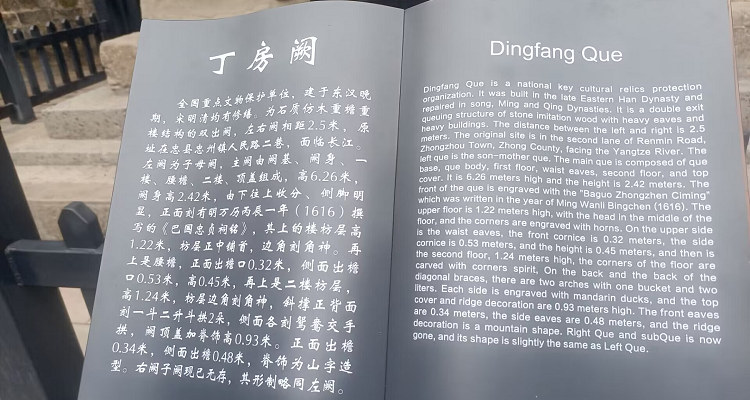 丁房阙
全国重点文物保护单位，建于东汉晚
期，宋明清均有修缮。为石质仿木重檐重
楼结构的双出阙，左右阙相距2.5米，原
址在忠县忠州镇人民路二巷，面临长江。
左阙为子母阙，主阙由阙基、阙身、一
楼、腰檐、二楼、顶盖组成，高6.26米，
阙身高2.42米，由下往上收分、侧脚明
显，正面刻有明万历丙辰一年（1616）撰
写的《巴国忠贞祠铭》，其上的楼枋层高
1.22米，枋层正中铺首，边角刻角神。再
上是腰檐，正面出檐口0.32米，侧面出檐
口0.53米，高0.45米，再上是二楼枋层，
高1.24米，枋层边角刻角神，斜撑正背面
刻一斗二升斗拱2朵，侧面各刻鸳鸯交手
拱，阙顶盖加脊饰高0.93米。正面出檐
0.34米，侧面出檐0.48米，脊饰为山字造
型。右阙子阙现已无存，其形制略同左阙。
Dingfang Que
Dingfang Que is a national key cultural relics protection
organization. It was built in the late Eastern Han Dynasty and
repaired in song, Ming and Qing Dynasties. It is a double exit
queuing structure of stone imitation wood with heavy eaves and
heavy buildings. The distance between the left and right is 2.5
meters. The original site is in the second lane of Renmin Road,
Zhongzhou Town, Zhong County, facing the Yangtze River. The
left que is the son-mother que. The main que is composed of que
base, que body, first floor, waist eaves, second floor, and top
cover. It is 6.26 meters high and the height is 2.42 meters. The
front of the que is engraved with the "Baguo Zhongzhen Ciming"
which was written in the year of Ming Wanli Bingchen (1616). The
upper floor is 1.22 meters high, with the head in the middle of the
floor, and the corners are engraved with horns. On the upper side
is the waist eaves, the front cornice is 0.32 meters, the side
cornice is 0.53 meters, and the height is 0.45 meters, and then is
the second floor, 1.24 meters high, the corners of the floor are
carved with corners spirit, On the back and the back of the
diagonal braces, there are two arches with one bucket and two
liters. Each side is engraved with mandarin ducks, and the top
cover and ridge decoration are 0.93 meters high. The front eaves
are 0.34 meters, the side eaves are 0.48 meters, and the ridge
decoration is a mountain shape. Right Que and subQue is now
gone, and its shape is slightly the same as Left Que.